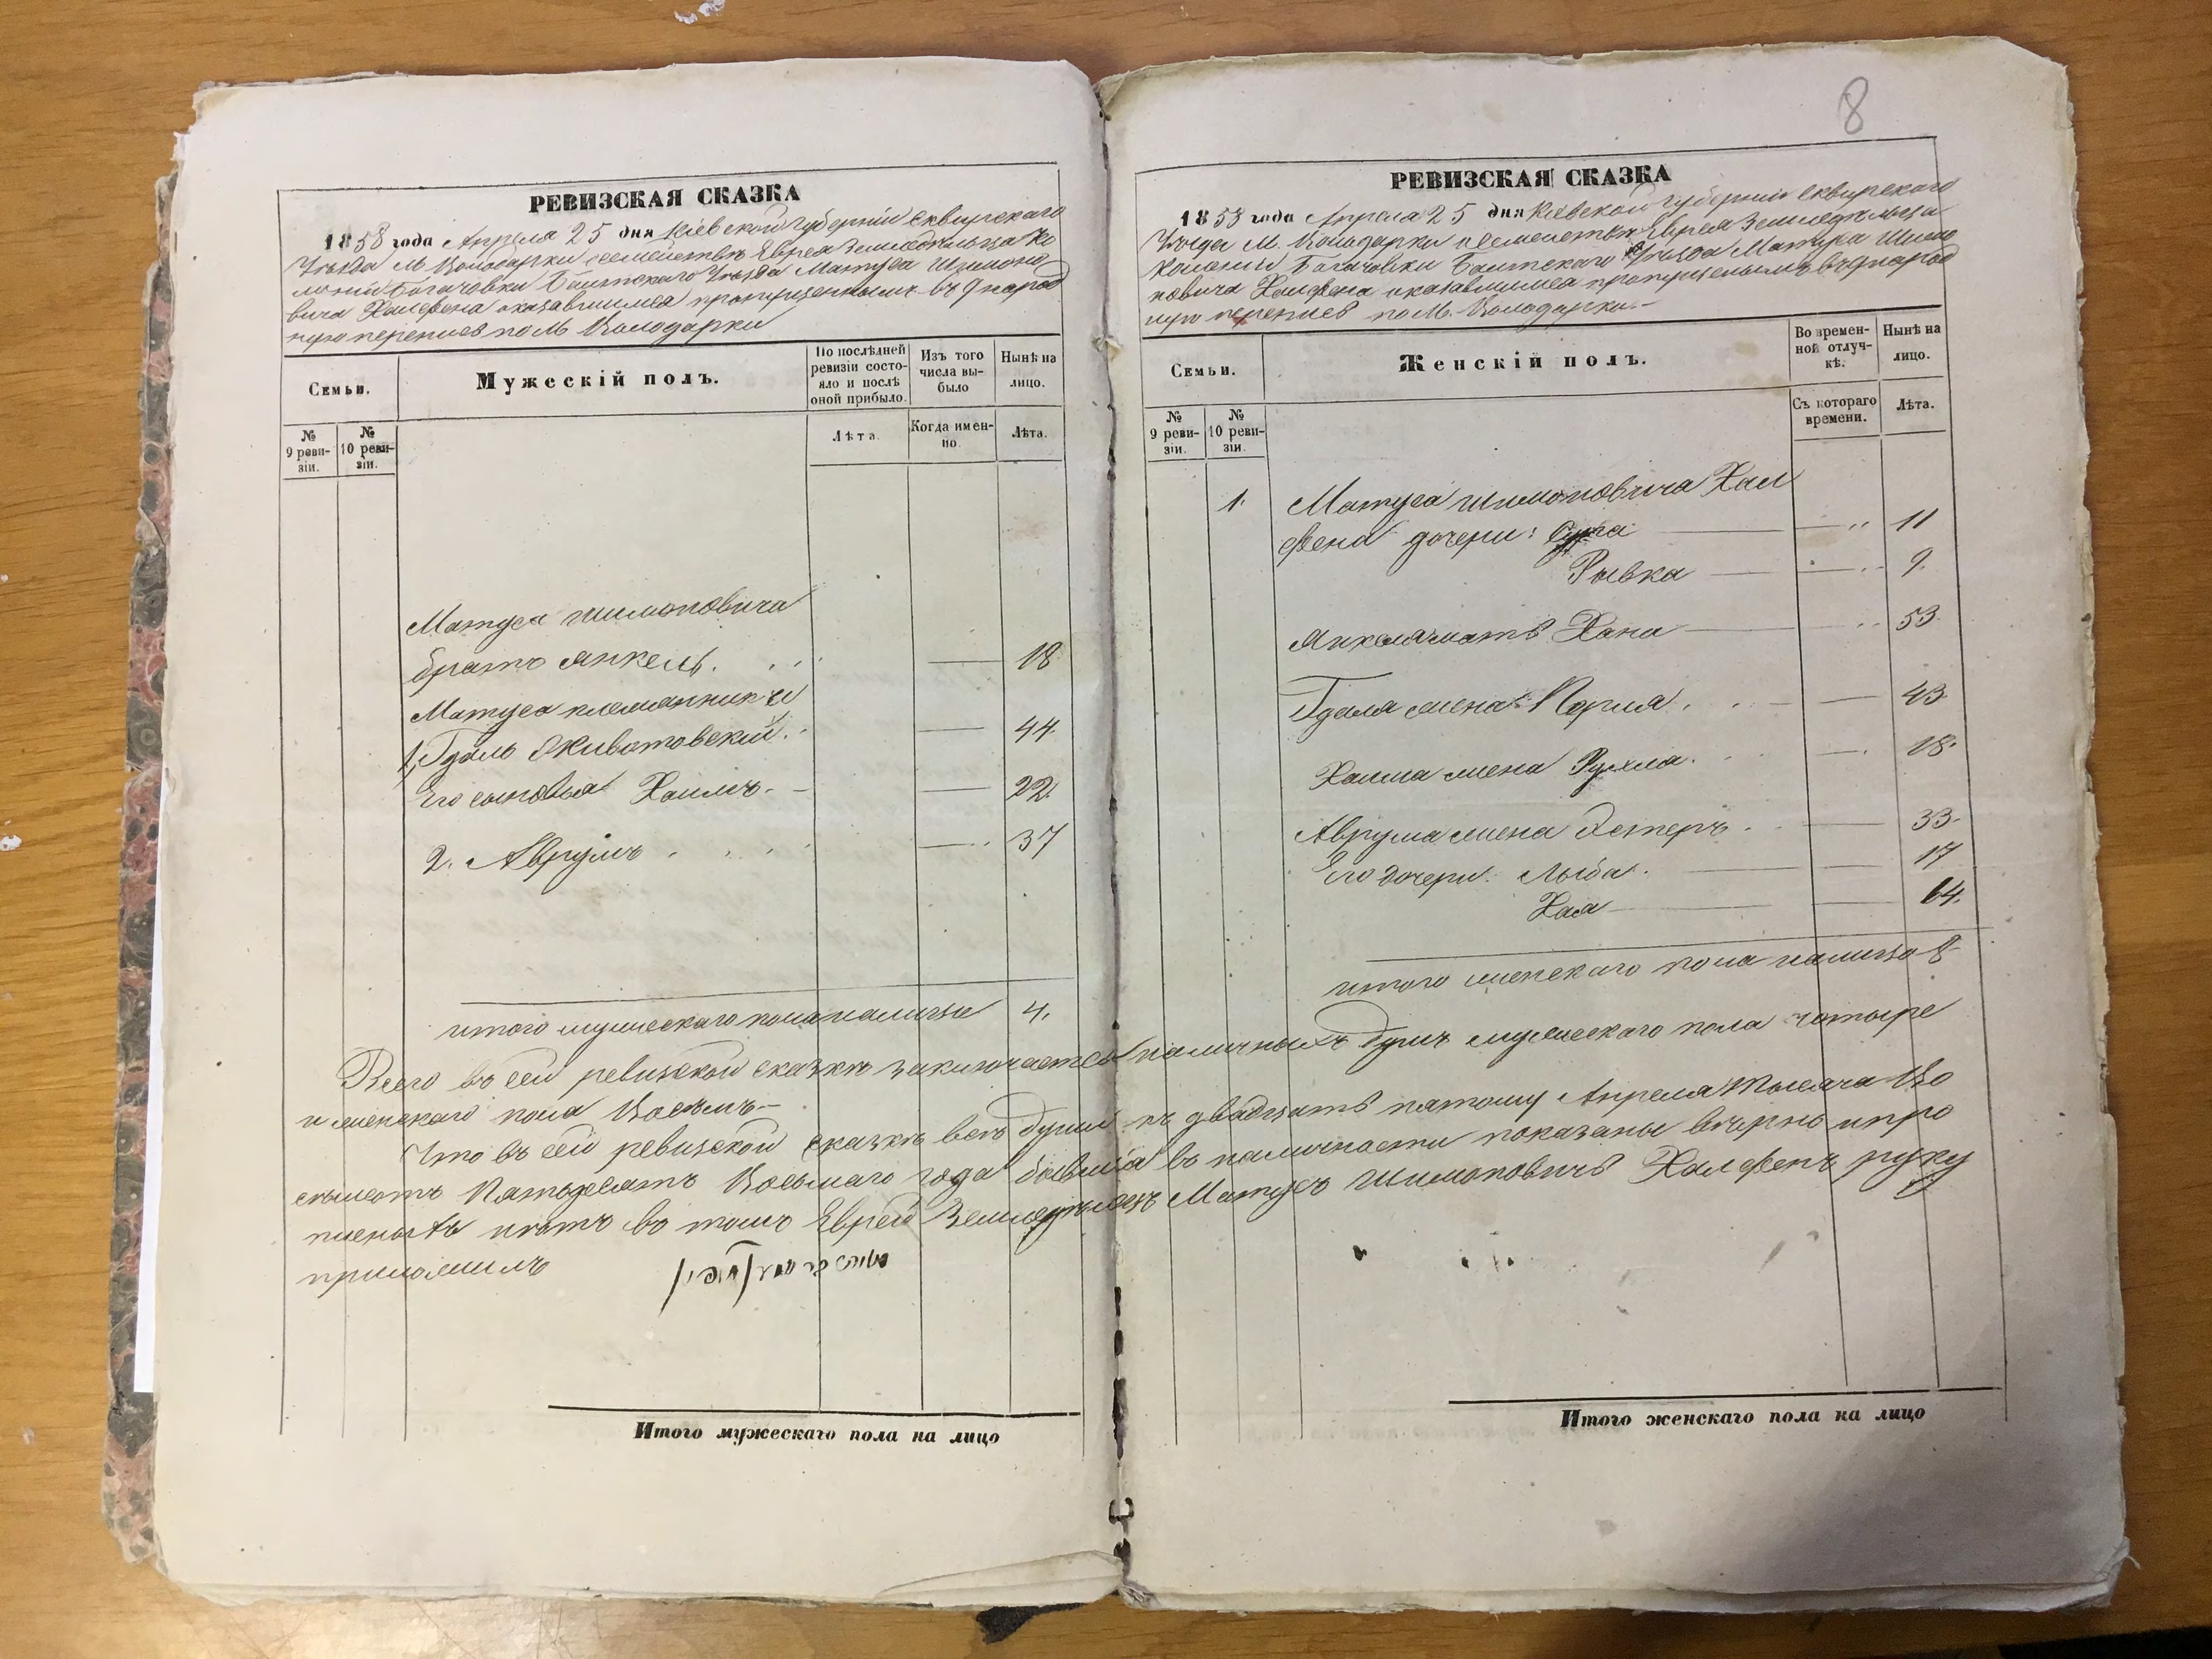 8
РЕВИЗСКАЯ СКАЗКА
1858 года Апреля 25 дня Кіевской губерніи Сквирскаго
Уезда М Володарки о семействе Еврея Земледельца Ко
лоніи Богачовки Балтскаго Уезда Матуса Шимоно
вича Халфена оказавшимся пропущенными въ 9 народ
ную перепись по М Володарки
Семьи.
Мужескій полъ.
По послѣдней ревизіи состояло и послѣ оной прибыло.
Изъ того числа выбыло
Нынѣ на лицо.
№ 9 ревизіи.
№ 10 ревизіи.
Лѣта.
Когда именно.
Лѣта.
Матуса Шимоновича
братъ Янкель. 18
Матуса племянники
1, Гдаль Животовскій. 44
Его сыновья Хаимъ. 22
2. Аврумъ 37
итого мужескаго пола налицо 4.
РЕВИЗСКАЯ СКАЗКА
1858 года Апреля 25 дня Кіевской губерніи Сквирскаго
Уезда М. Володарки о семействе Еврея Земледельца
Колоніи Богачовки Балтскаго Уезда Матуса Шимо
новича Халфена оказавшимся пропущенными въ 9 народ
ную перепись по М. Володарки.
Семьи.
Женскій полъ.
Во временной отлучкѣ.
Нынѣ на лицо.
№ 9 ревизіи.
№ 10 ревизіи.
Съ котораго времени.
Лѣта.
1. Матуса Шимоновича Хал
фена дочери: Сура 11
Рывка 9.
Янкеля мать Хана 53.
Гдаля жена 43.
Хаима жена Рухля. 18.
Аврума жена Эстеръ. 33.
Его дочери: Лыба. 17
Хая 14.
итого женскаго пола налицо 8
Всего въ сей ревизской сказкѣ заключается наличныхъ душъ мужескаго пола четыре
и женскаго пола Восемь
Что въ сей ревизской сказкѣ всѣ души къ двадцать пятому Апреля Тысяча Во
семьсотъ Пятьдесятъ Восьмаго года бывшія въ наличности показаны вѣрно и про
писныхъ нѣтъ во томъ Еврей Земледѣлецъ Матусъ Шимоновичъ Халфенъ руку
приложилъ
Итого мужескаго пола на лицо
Итого женскаго пола на лицо